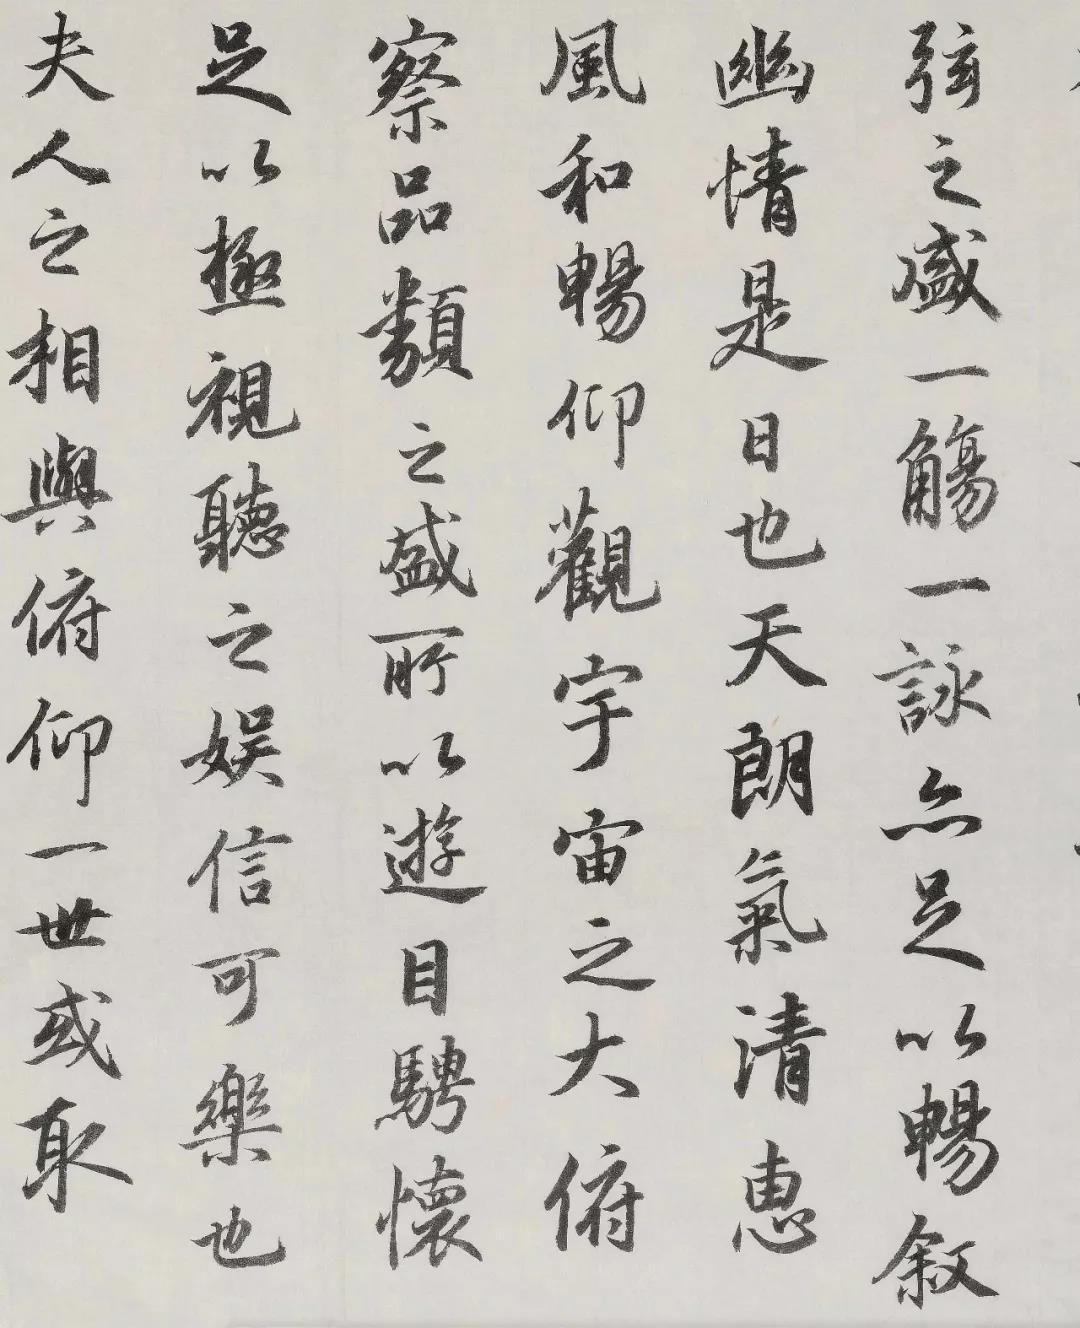 弦之盛一觴一詠亦足以暢叙
幽情是日也天朗氣清惠
風和暢仰觀宇宙之大俯
察品類之盛所以遊目騁懷
足以極視聽之娱信可樂也
夫人之相與俯仰一世或取